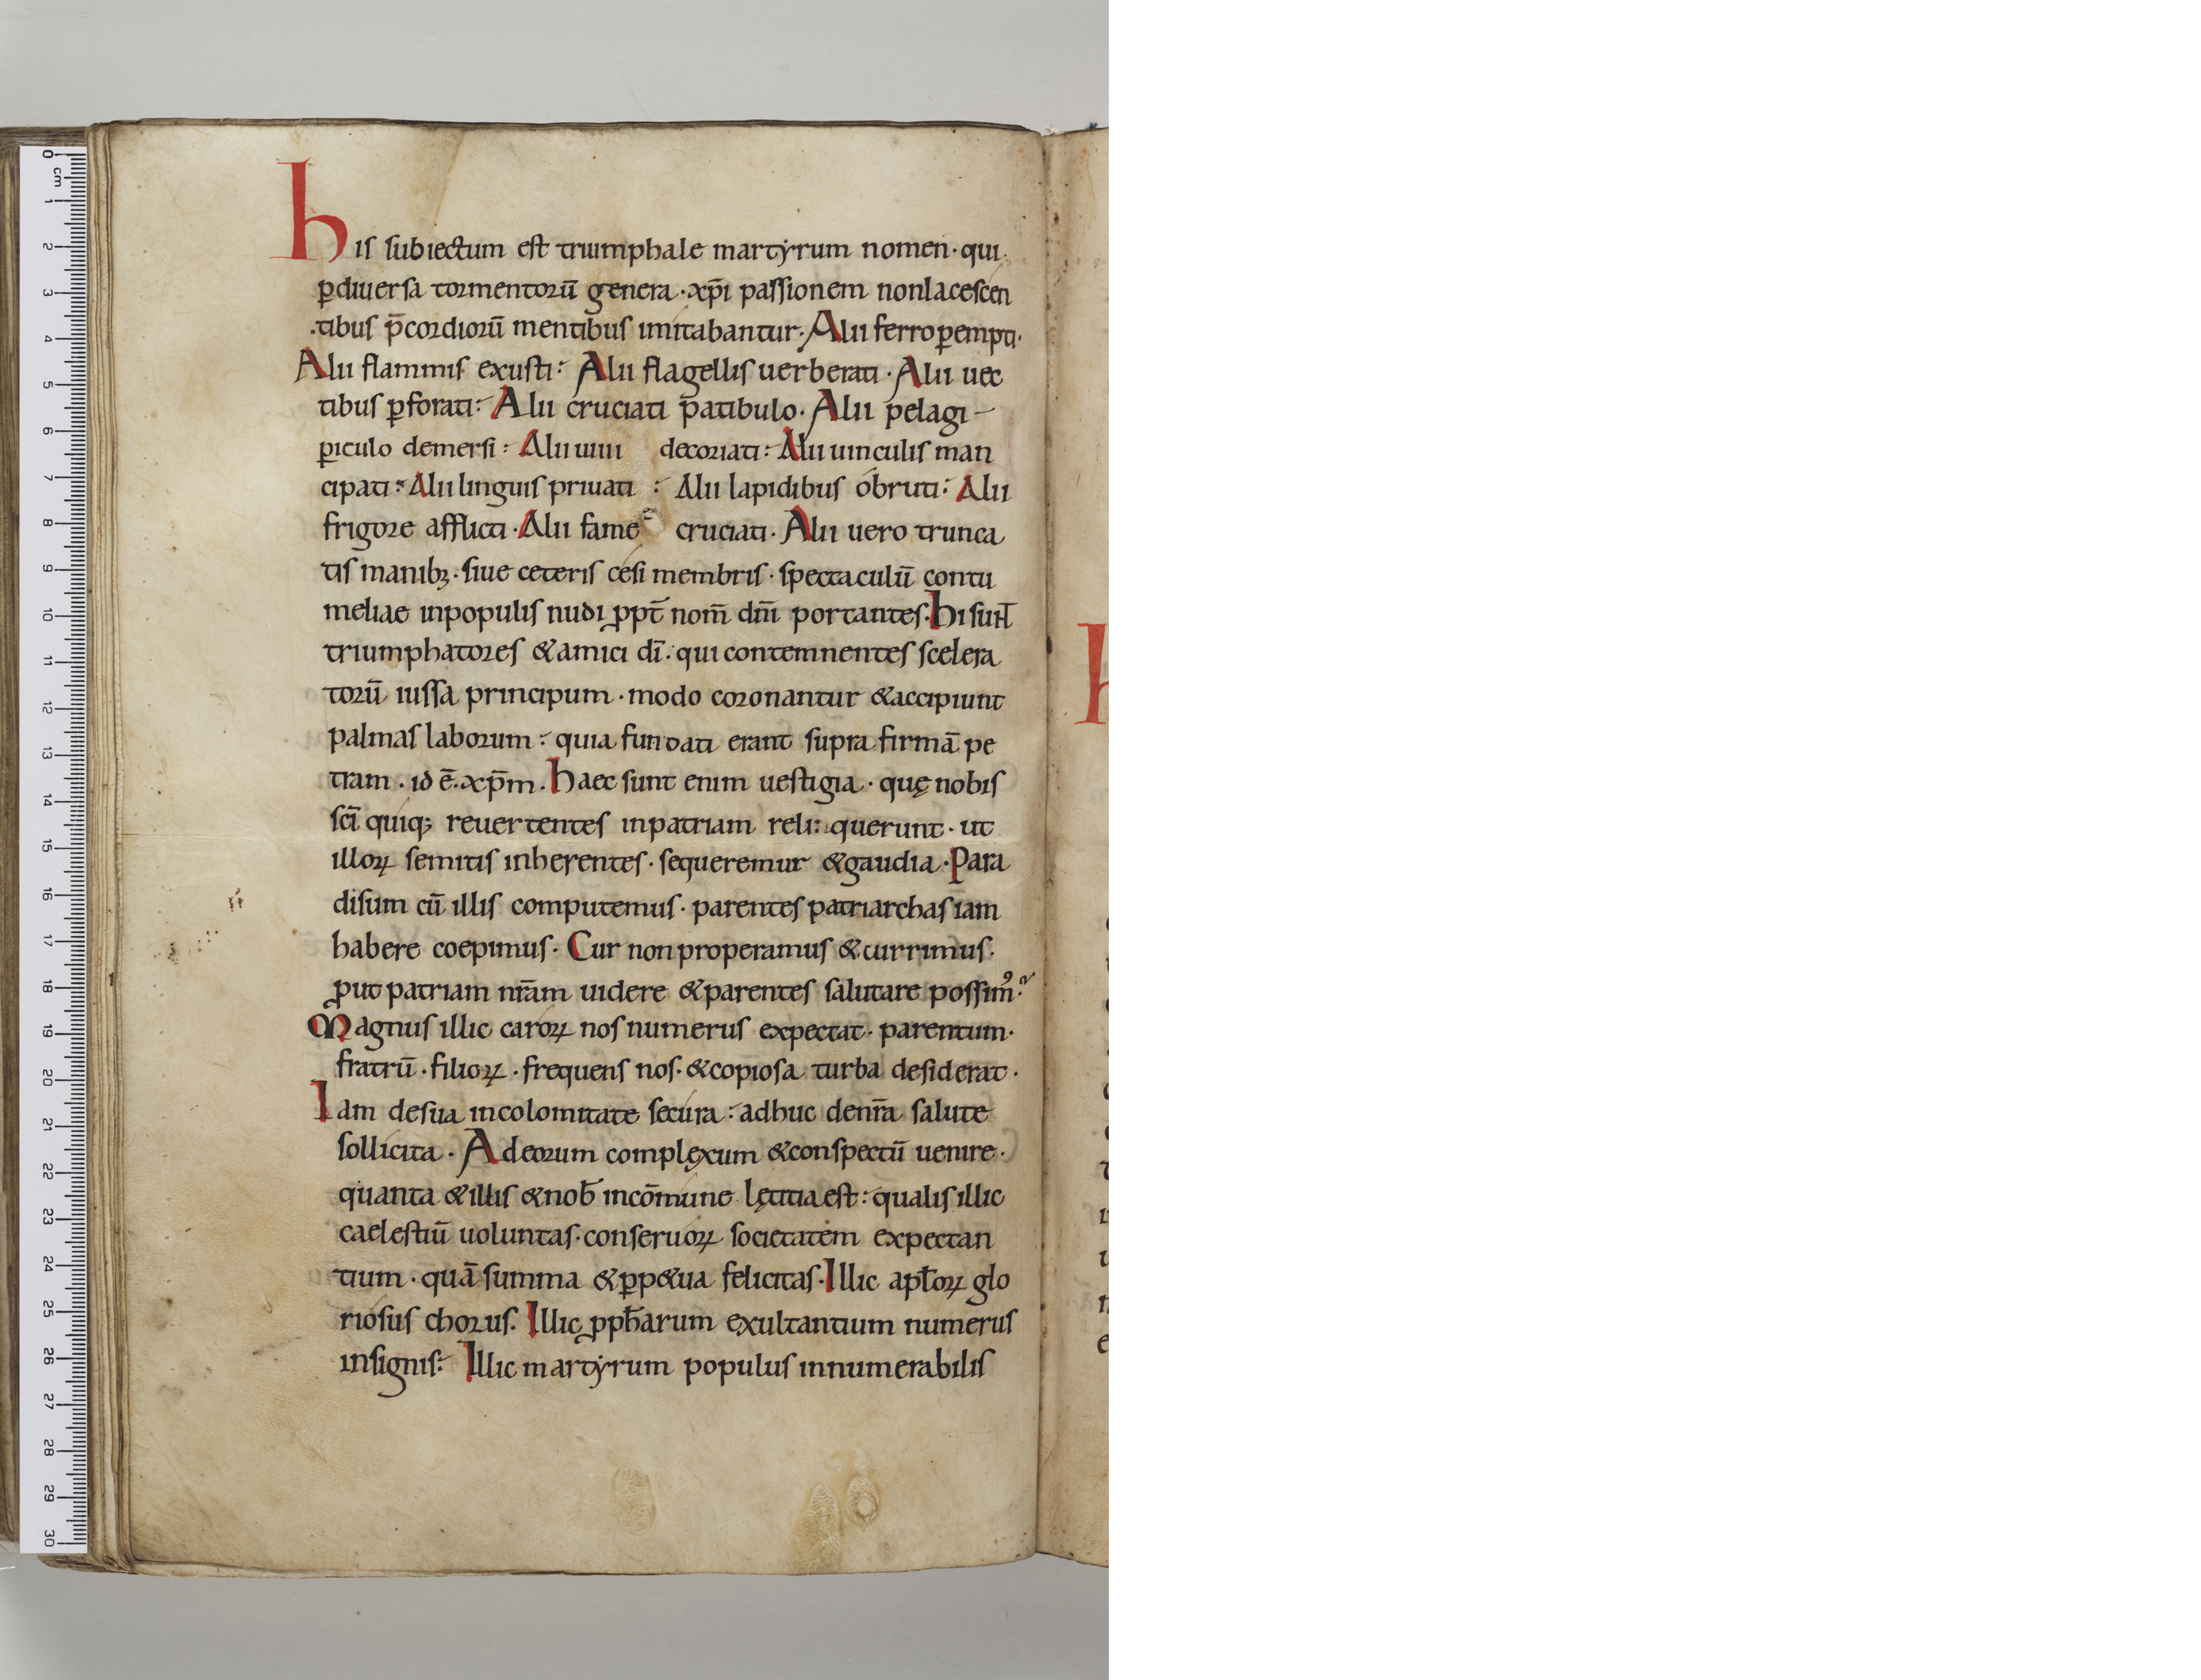 his subiectum est triumphale martẏrum nomen · qui
ꝑdiuersa tormentorū genera · xp̄i passionem nonlacescen
tibus p̄cordiorū mentibus imitabantur · Alii ferroꝑempti ·
Alii flammis exusti : Alii flagellis uerberati · Alii uec
tibus ꝑforati : Alii cruciati patibulo · Alii pelagi
ꝑiculo demersi : Alii uiui decoriati : Alii uinculis man
cipati : Alii linguis priuati : Alii lapidibus obruti : Alii
frigore afflicti · Alii fame cruciati · Alii uero trunca
tis manibꝫ · siue ceteris cesi membris · spectaculū contu
meliae inpopulis nudi ꝓpt̄ nom̄ dn̄i portantes · hi sunt
triumphatores &amici dī · qui contemnentes scelera
torū iussa principum · modo coronantur &accipiunt
palmas laborum : quia fundati erant supra firmā pe
tram · id ē · xp̄m · haec sunt enim uestigia · quę nobis
sc̄i quiq; reuertentes inpatriam reli querunt · ut
illoꝝ semitis inherentes · sequeremur &gaudia · Para
disum cū illis computemus · parentes patriarchas iam
habere coepimus · Cur non properamus &currimus ·
ꝓut patriam nr̄am uidere &parentes salutare possimꝰ
Magnus illic caroꝝ nos numerus expectat · parentum ·
fratrū · filioꝝ · frequens nos · &copiosa turba desiderat ·
Iam desua incolomitate secura : adhuc denr̄a salute
sollicita · Adeorum complęxum &conspectū uenire ·
quanta &illis &nob̄ incōmune lętitia est : qualis illic
caelestiū uoluntas · conseruoꝝ societatem expectan
tium · quā summa &ꝑp&ua felicitas · Illic apl̄oꝝ glo
riosus chorus · Illic ꝓph̄arum exultantium numerus
insignis : Illic martẏrum populus innumerabilis
0 cm 1 2 3 4 5 6 7 8 9 10 11 12 13 14 15 16 17 18 19 20 21 22 23 24 25 26 27 28 29 30